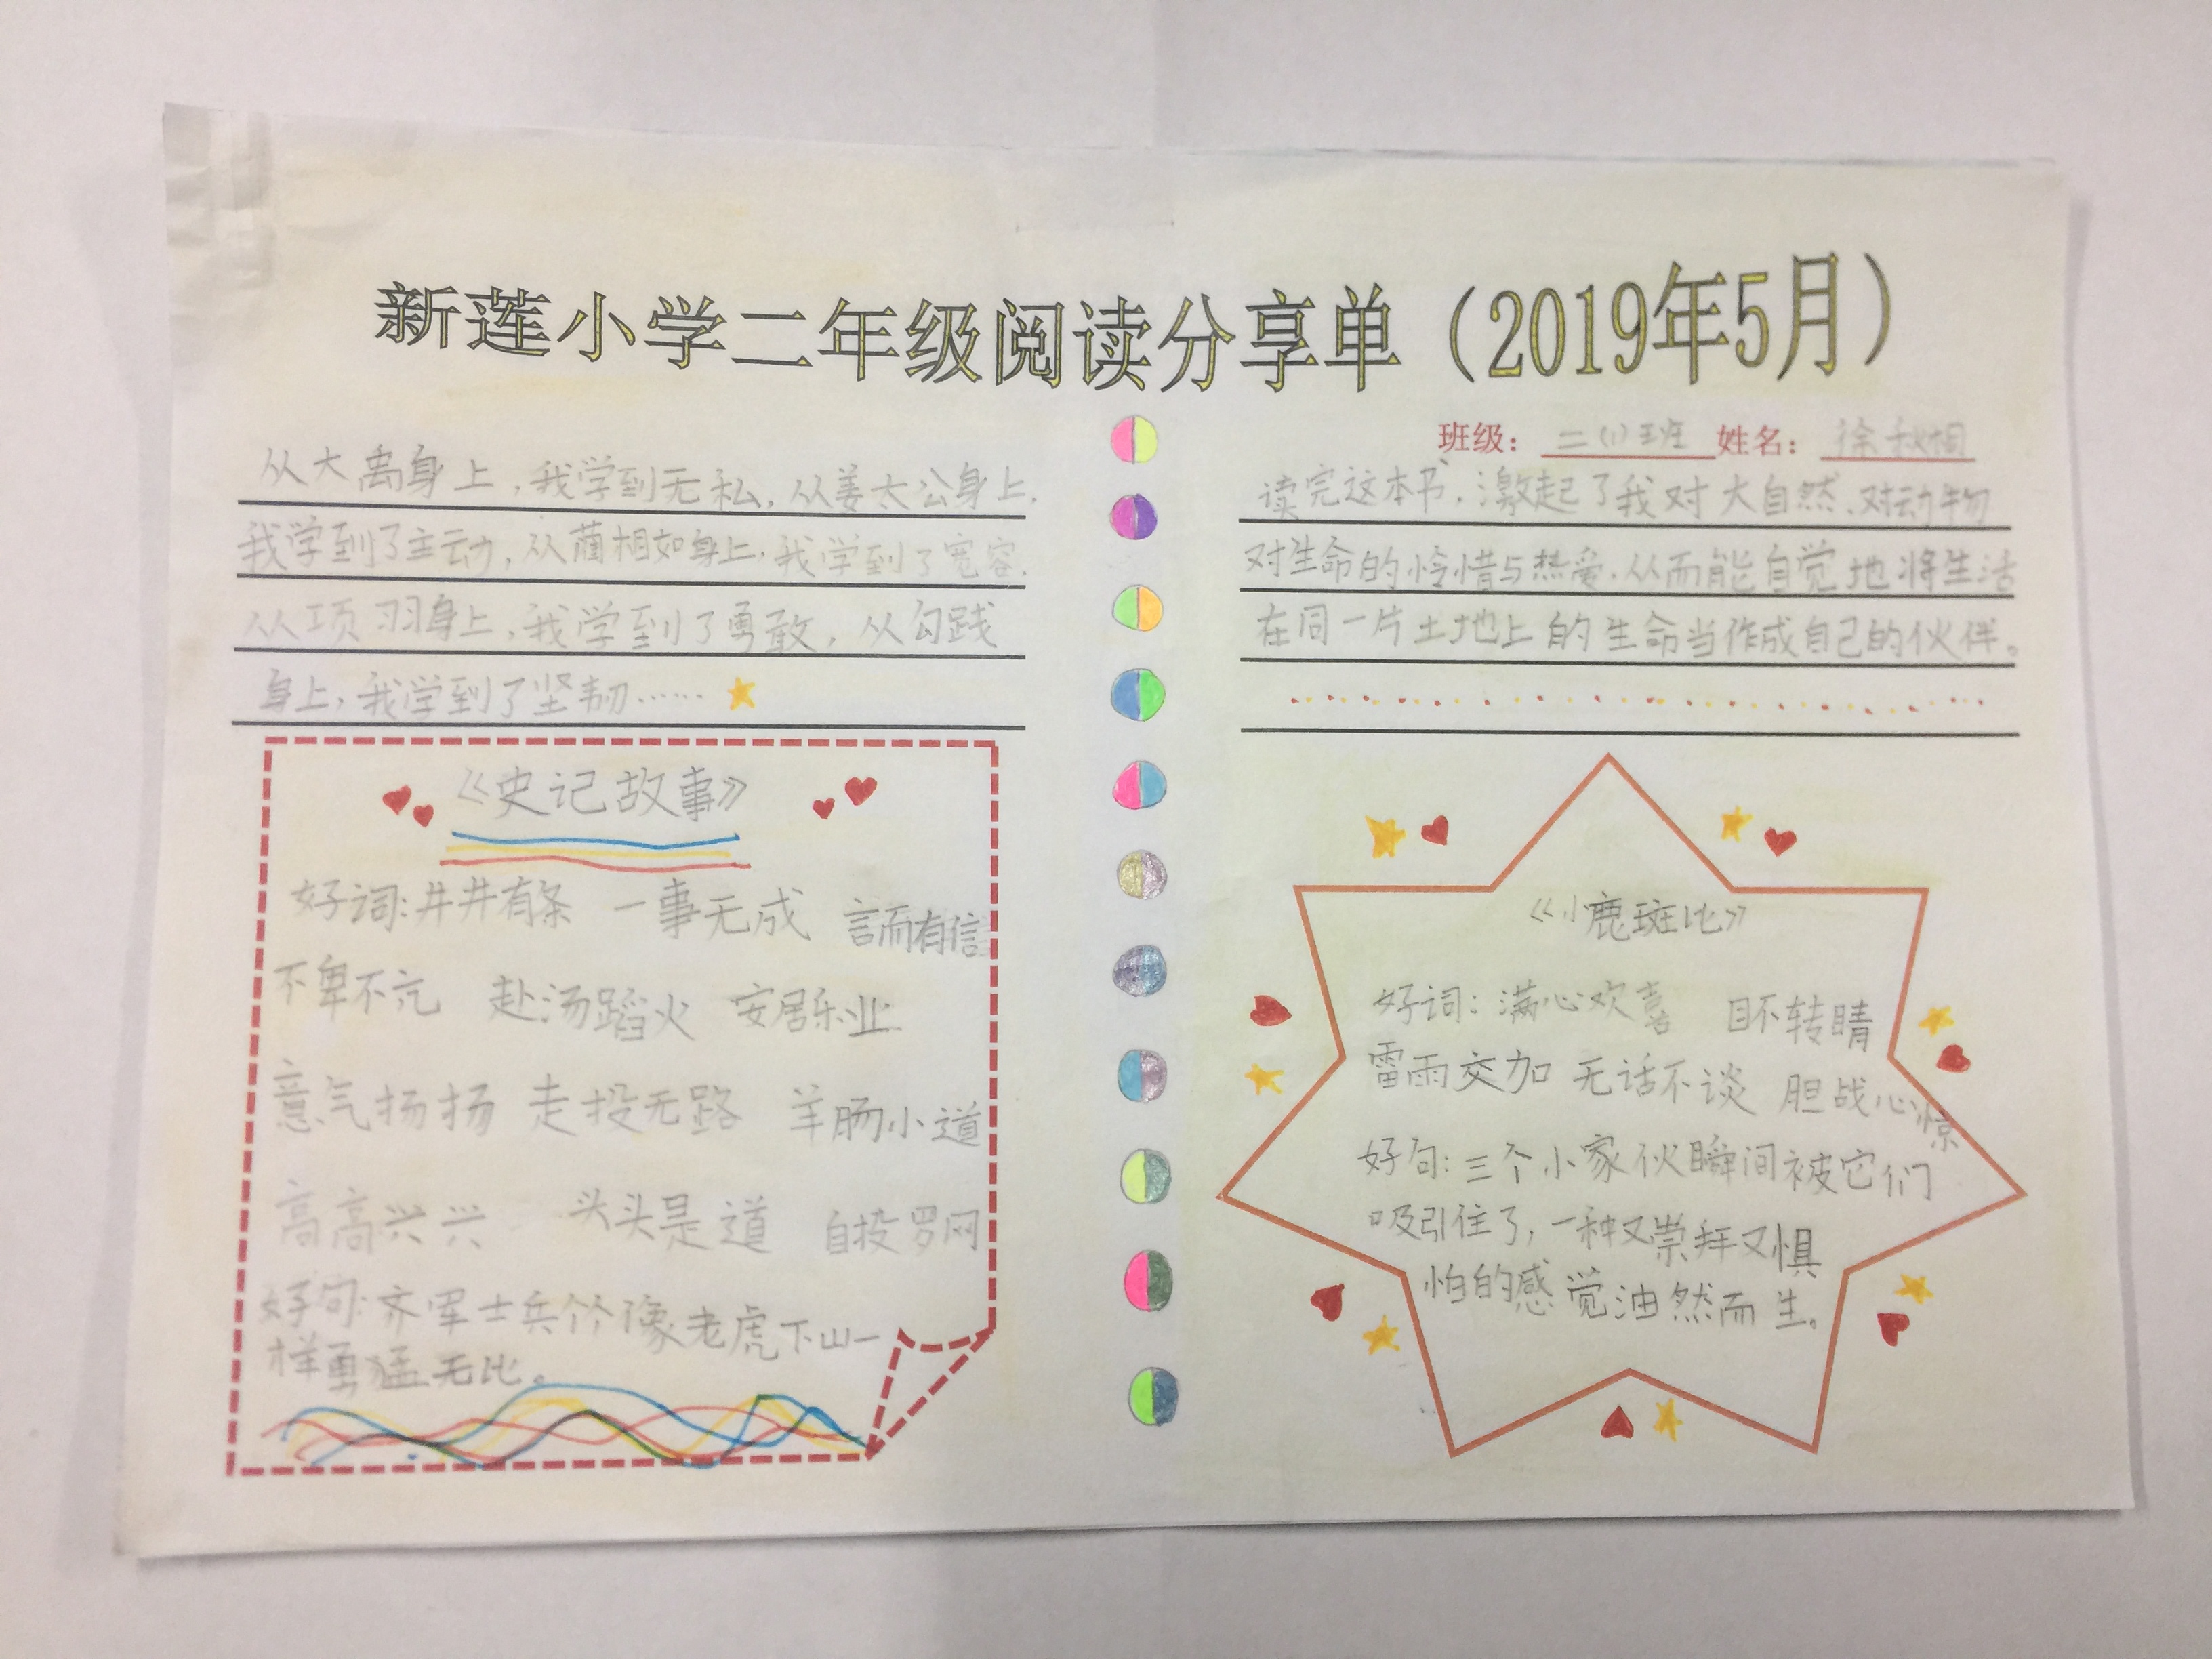 新莲小学二年级阅读分享单（2019年5月）
班级：二(1)班 姓名：徐秋桐
从大禹身上，我学到无私，从姜太公身上，
我学到了主动，从蔺相如身上，我学到了宽容，
从项羽身上，我学到了勇敢，从勾践
身上，我学到了坚韧……
《史记故事》
好词：井井有条 一事无成 言而有信
不卑不亢 赴汤蹈火 安居乐业
意气扬扬 走投无路 羊肠小道
高高兴兴 头头是道 自投罗网
好句：齐军士兵个个像老虎下山一
样勇猛无比。
读完这本书，激起了我对大自然、对动物
对生命的怜惜与热爱，从而能自觉地将生活
在同一片土地上的生命当作成自己的伙伴。
《小鹿斑比》
好词：满心欢喜 目不转睛
雷雨交加 无话不谈 胆战心惊
好句：三个小家伙瞬间被它们
吸引住了，一种又崇拜又惧
怕的感觉油然而生。